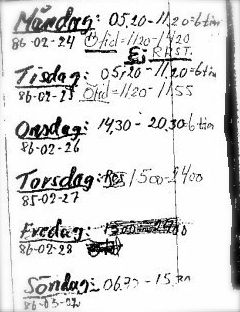 Måndag: 05,20-11,20=6tim
86-02-24 Ötid=1120-1420
Ej RAST.
Tisdag: 05,20-11,20=6tim
86-02-25 Ötid=1120-1155
Onsdag: 14,30-20,30=6tim
86-02-26
Torsdag: 1500-2400
85-02-27
Fredag:
86-02-28
Söndag: